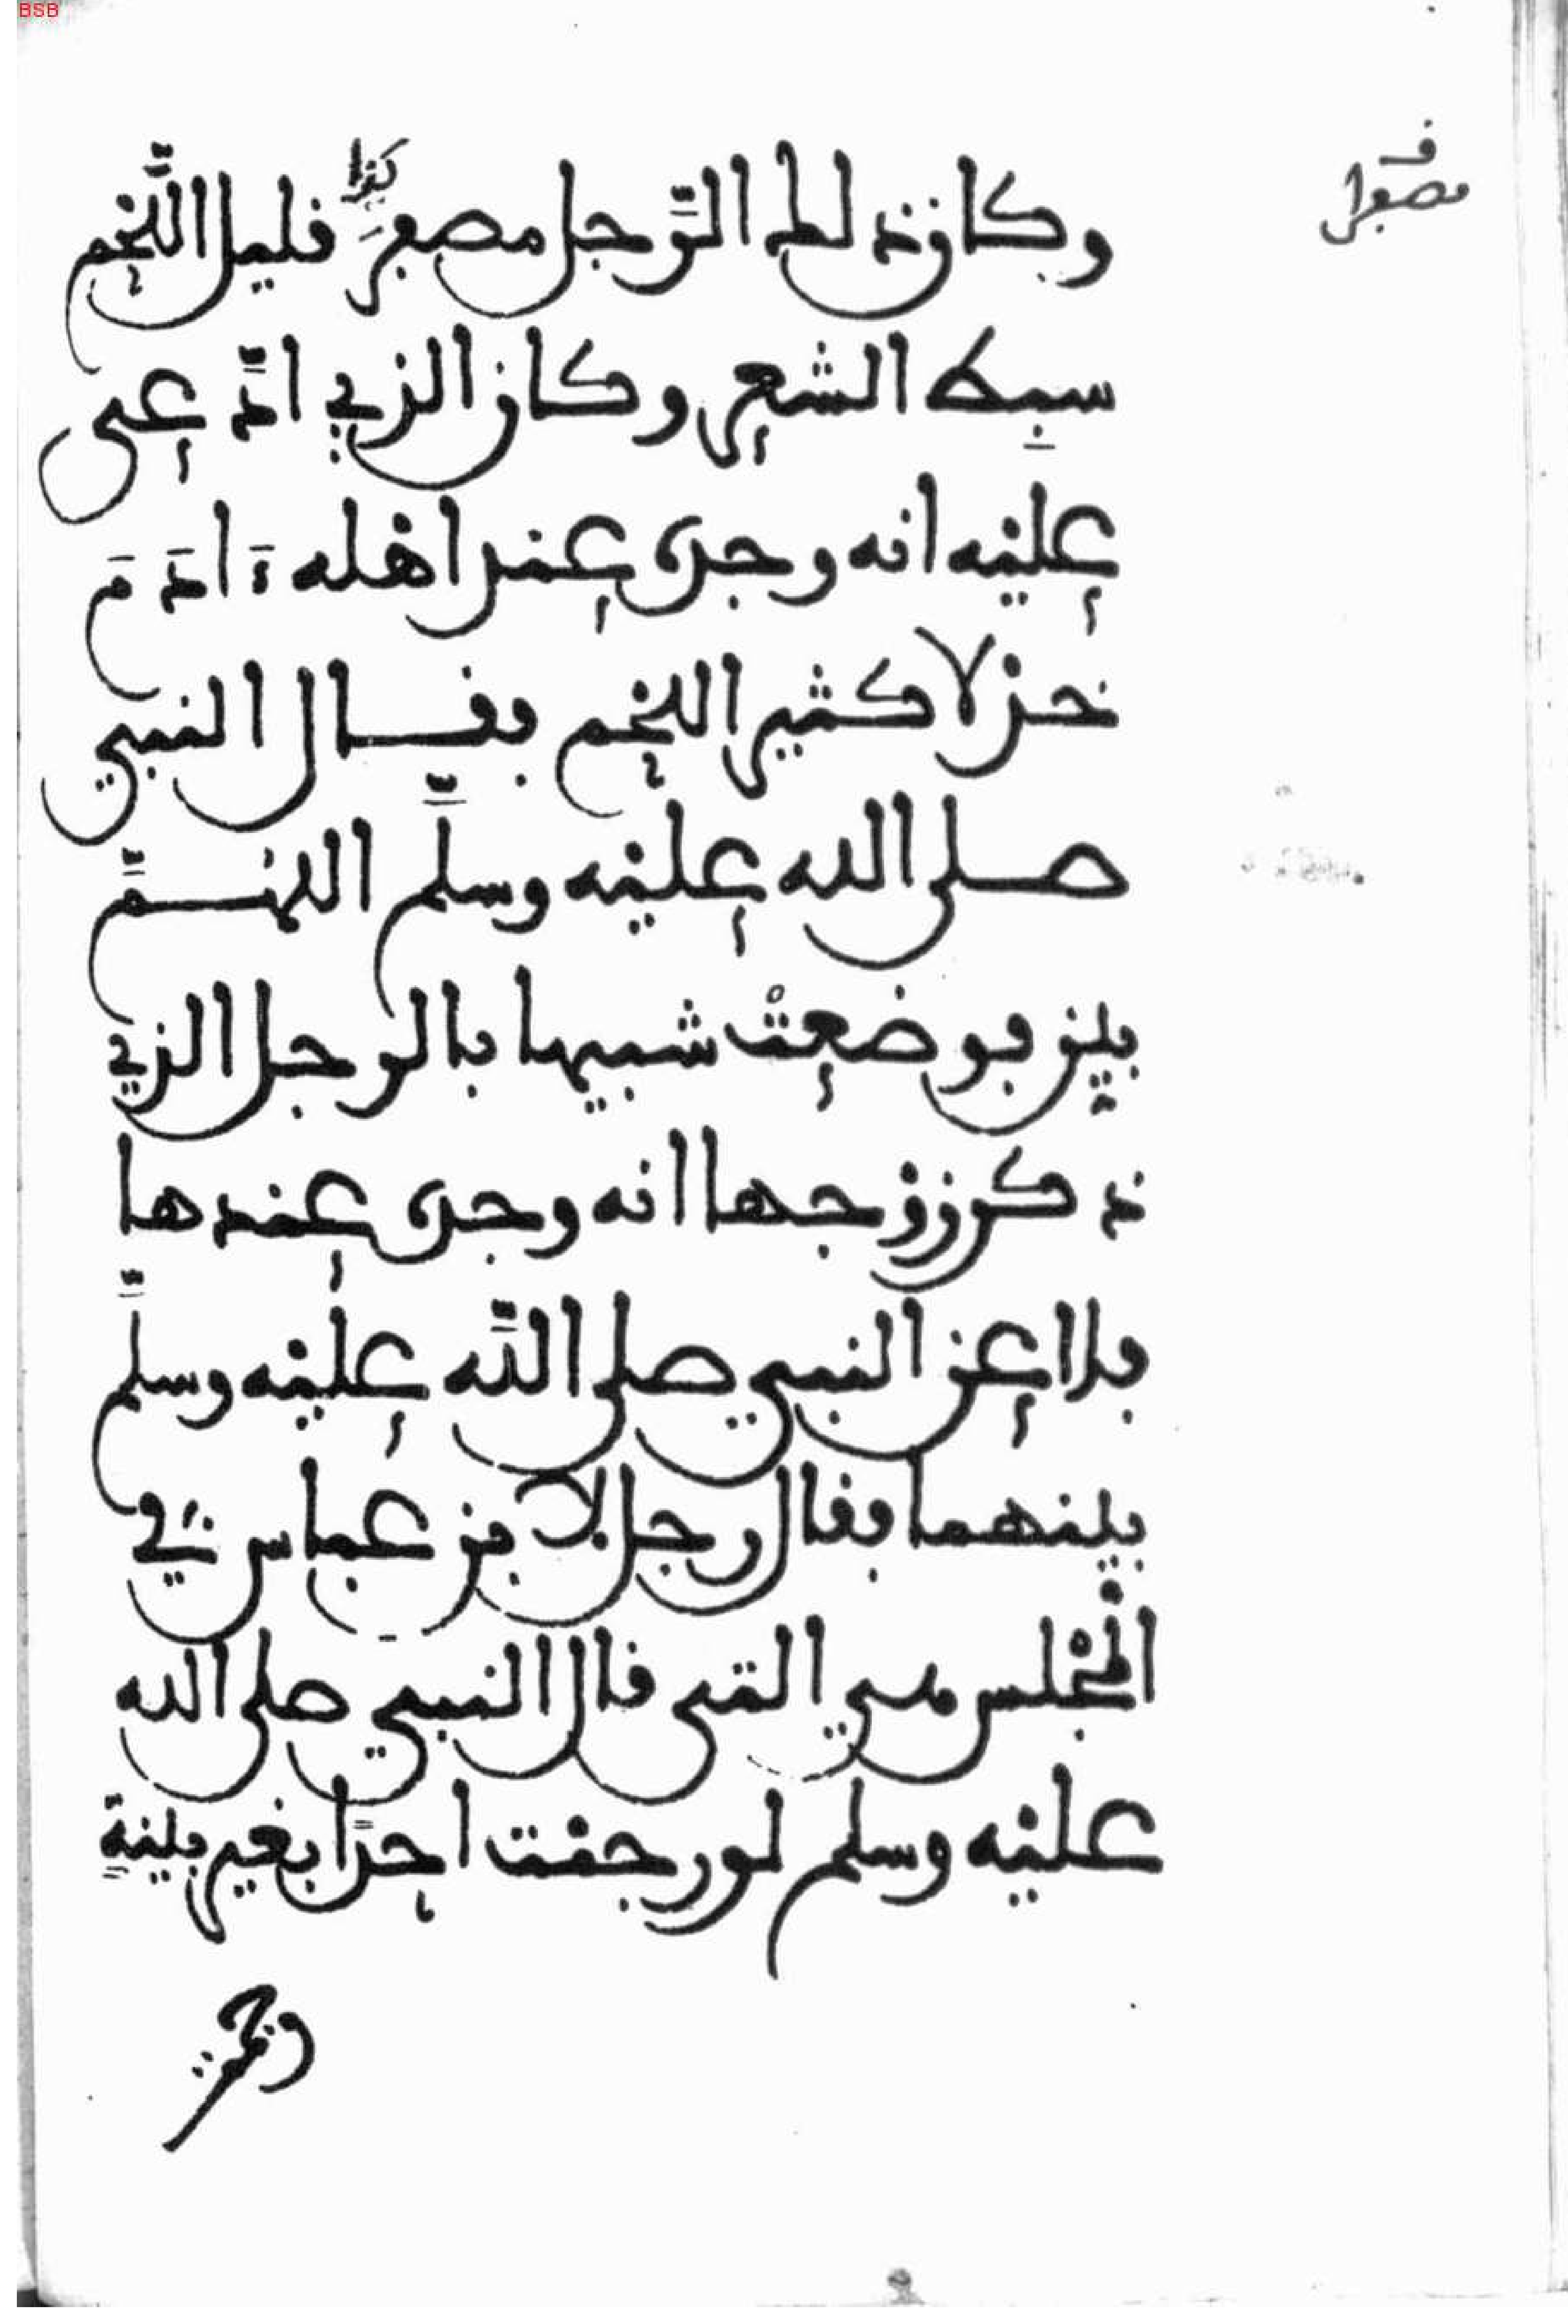 BSB
مصفرا
كذا
وكان ذلك الرّجل مصفرّ قليل اللّحم
سبط الشعر وكان الذي ادّعى
عليه انه وجد عند اهله ءَادَمَ
خدلا كثير اللحم فقال النبي
صلى الله عليه وسلّم اللهمّ
بين فوضعتْ شبيها بالرجل الذي
ذكر زوجها انه وجد عندها
فلاعن النبي صلى اللّه عليه وسلّم
بينهما فقال رجل لابن عباس في
المجْلس هي التي قال النبي صلى الله
عليه وسلم لو رجمت احدًا بغير بينةٍ